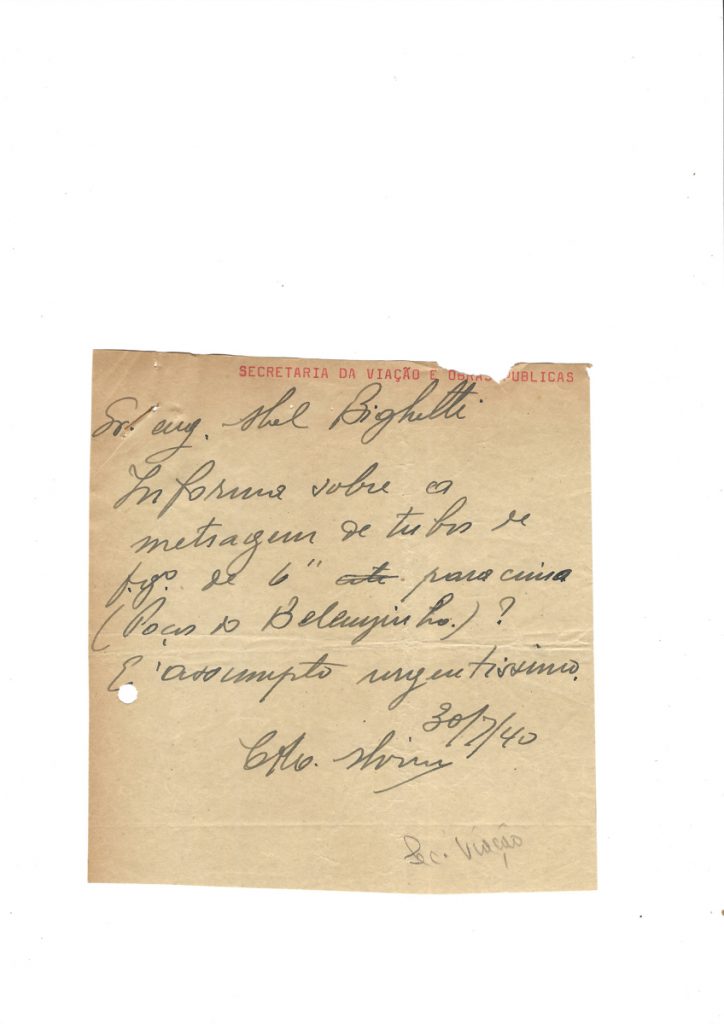 SECRETARIA DA VIAÇÃO E OBRAS PUBLICAS
Sr. eng. Abel Bighetti
Informa sobre a
metragem de tubos de
f.gº. de 6" para cima
(Poços do Belemzinho.) ?
E' assumpto urgentissimo.
30/7/40
Sec. Viação